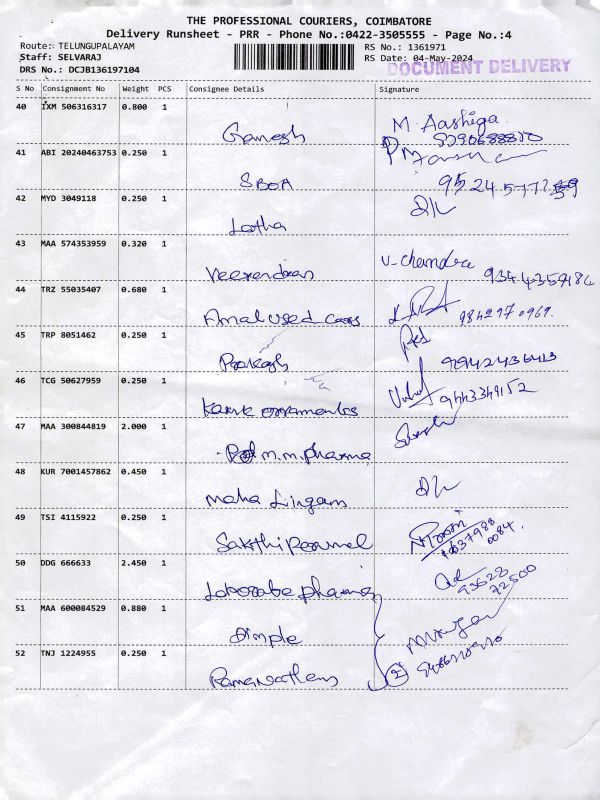 THE PROFESSIONAL COURIERS, COIMBATORE
Delivery Runsheet - PRR - Phone No.:0422-3505555 - Page No.:4
Route: TELUNGUPALAYAM RS No.: 1361971
Staff: SELVARAJ RS Date: 04-May-2024
DRS No.: DCJB136197104 DOCUMENT DELIVERY
S No Consignment No Weight PCS Consignee Details Signature
40 IXM 506316317 0.800 1
Ganesh M. Aashiga
41 ABI 20240463753 0.250 1
SBOA
42 MYD 3049118 0.250 1
Latha
43 MAA 574353959 0.320 1
Veerendran V-chandra 9344359186
44 TRZ 55035407 0.680 1
Amal used cars 9842970969.
45 TRP 8051462 0.250 1
Prakash 98942436413
46 TCG 50627959 0.250 1
ornaments 9443349152
47 MAA 300844819 2.000 1
m.m.pharma
48 KUR 7001457862 0.450 1
Maha Lingam
49 TSI 4115922 0.250 1
Sakthi Perumal
50 DDG 666633 2.450 1
pharma 93628 72500
51 MAA 600084529 0.880 1
Dimple
52 TNJ 1224955 0.250 1
2